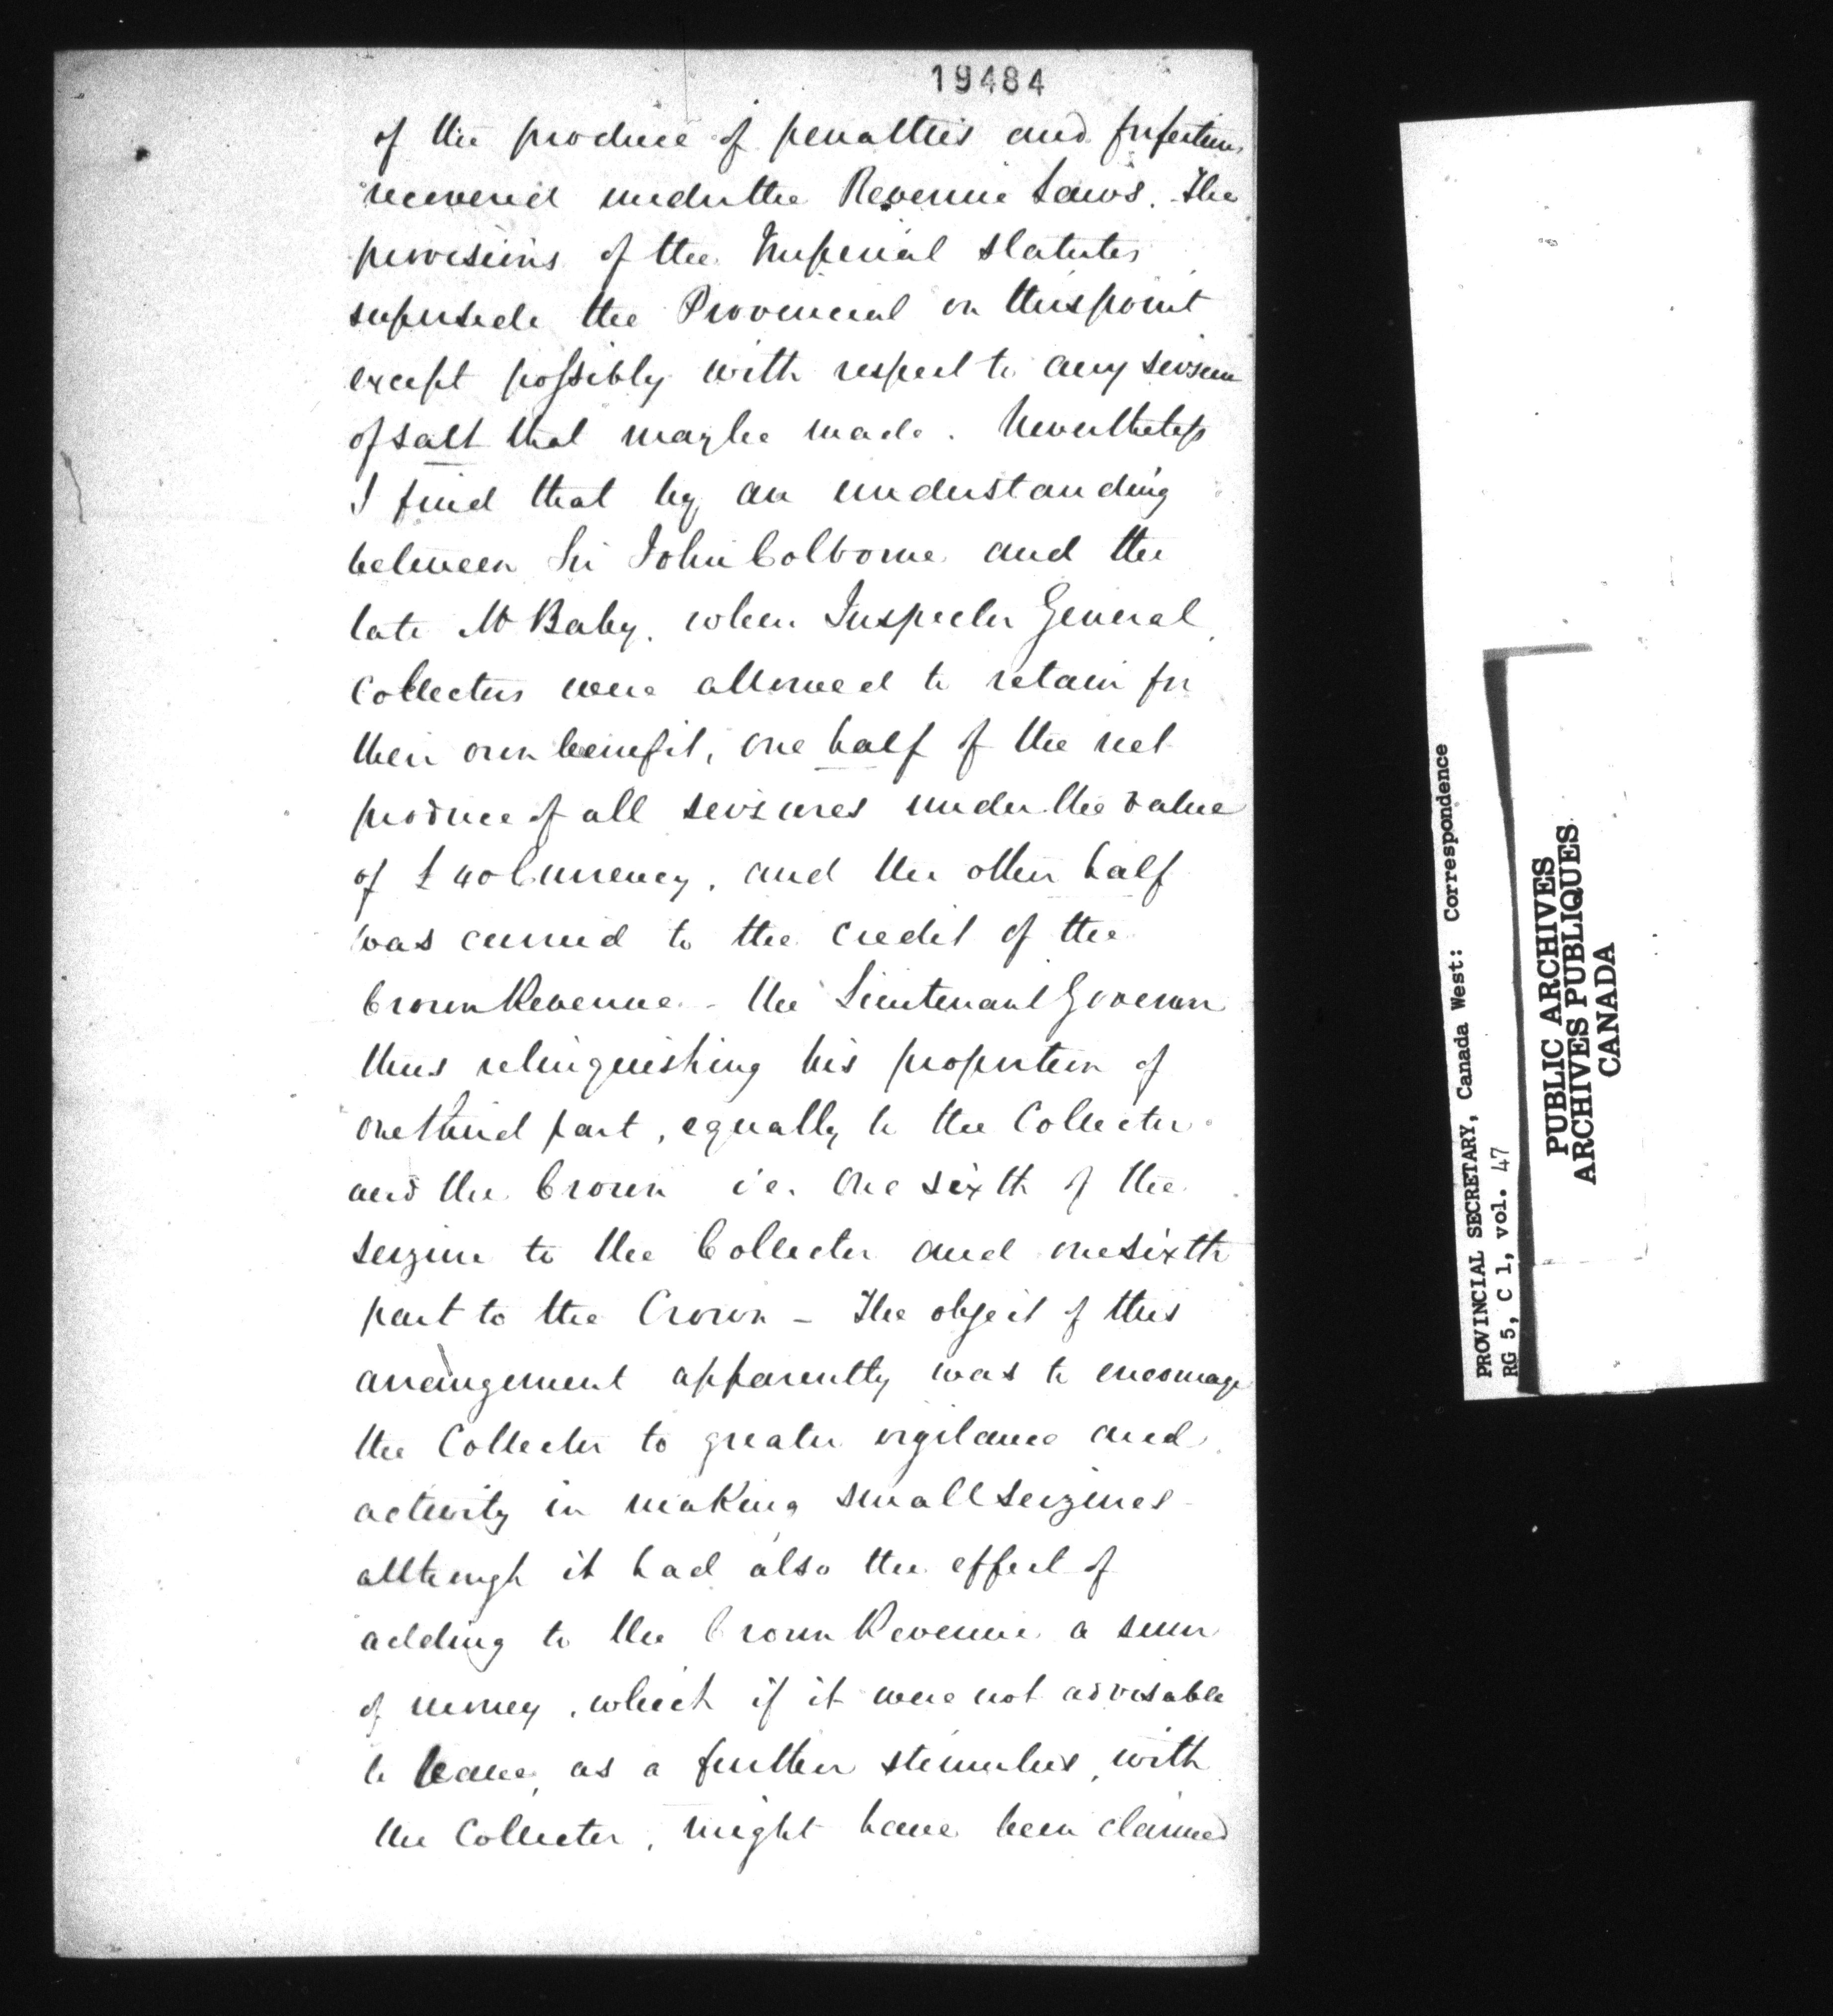 19484
of the produce of penalties and forfeitures
recovered under the Revenue Laws. The
provisions of the Imperial statutes
supersede the Provincial on this point
except possibly with respect to any seisure
of salt that may be made. Nevertheless
I find that by an understanding
between Sir John Colborne and the
late Mr Baby. when Inspector General,
Collectors were allowed to retain for
their own benefit, one half of the net
produce of all seisures under the value
of £40 Currency, and the other half
was carried to the credit of the
Crown Revenue - the Lieutenant Governor
thus relinquishing his proportion of
one third part, equally to the Collector
and the Crown i.e. One sixth of the
seizure to the Collector and one sixth
part to the Crown - The object of this
arrangement apparently was to encourage
the Collector to greater vigilance and
activity in making small seizures -
although it had also the effect of
adding to the Crown Revenue a sum
of money, which if it were not advisable
to leave, as a further stimulus, with
the Collector, might have been claimed
PROVINCIAL SECRETARY, Canada West: Correspondence
RG 5, C 1, vol. 47
PUBLIC ARCHIVES
ARCHIVES PUBLIQUES
CANADA